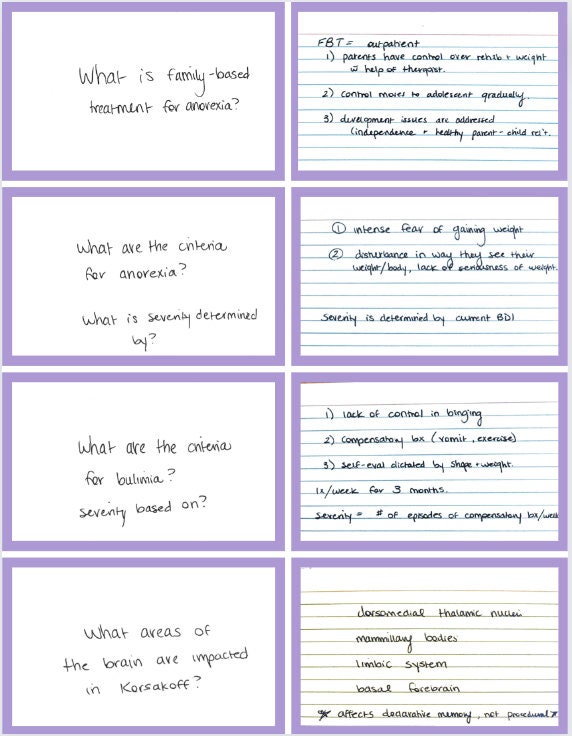 What is family-based
treatment for anorexia?
FBT = outpatient
1) parents have control over rehib + weight
w help of therapist.
2) control moves to adolescent gradually.
3) development issues are addressed
(independence + healthy parent-child rel't.
What are the criteria
for anorexia?
What is severity determined
by?
① intense fear of gaining weight
② disturbance in way they see their
weight/body, lack of seriousness of weight.
Severity is determined by current BDI
What are the criteria
for bulimia?
severity based on?
1) lack of control in binging
2) compensatory bx (vomit, exercise)
3) self-eval dictated by shape + weight.
1x/week for 3 months.
severity = # of episodes of compensatory bx/week
What areas of
the brain are impacted
in Korsakoff?
dorsomedial thalamic nuclei
mammillary bodies
limbic system
basal forebrain
* affects declarative memory, not procedural *